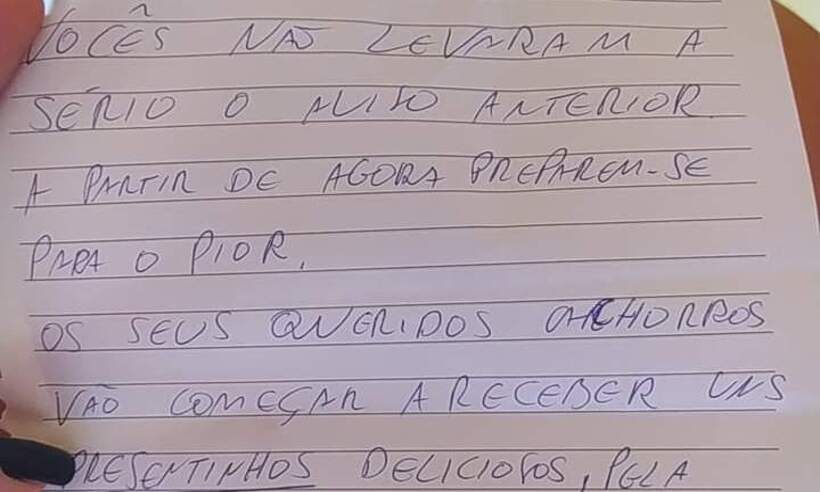 VOCÊS NÃO LEVARAM A
SÉRIO O AVISO ANTERIOR.
A PARTIR DE AGORA PREPAREM-SE
PARA O PIOR.
OS SEUS QUERIDOS CACHORROS
VÃO COMEÇAR A RECEBER UNS
PRESENTINHOS DELICIOSOS, PELA